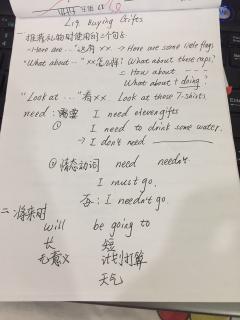 L19 Buying Gifts
一. 推荐礼物时使用的3个句子
"Here are …" 这有 ×× → Here are some little flags
"What about …" ××怎么样? What about these caps?
= How about - - -
What about + doing?
"Look at …" 看×× Look at these T-shirts
need: 需要 I need eleven gifts
① I need to drink some water.
→ I don't need
② 情态动词 need needn't
I must go.
否: I needn't go.
二. 将来时
will be going to
长 短
无意义 计划打算
天气